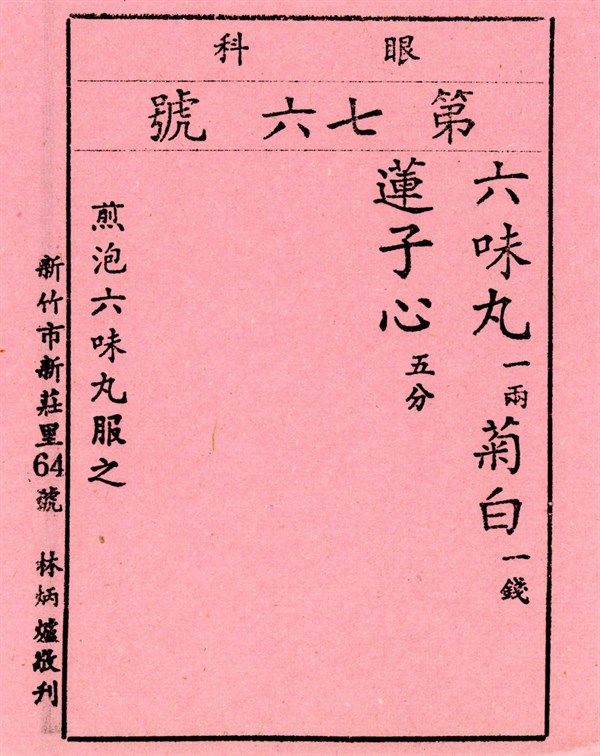 眼科
第七六號
六味丸一兩菊白一錢
蓮子心五分
煎泡六味丸服之
新竹市新莊里64號 林炳爐敬刋